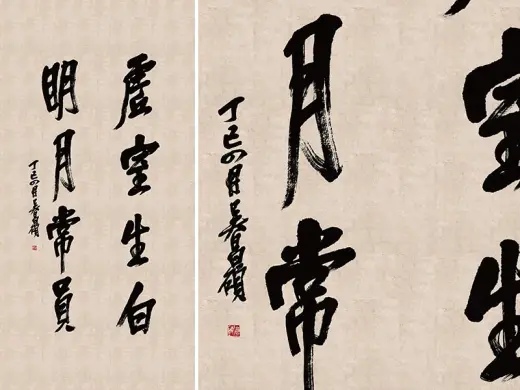 虛室生白
明月常員
丁巳四月吳昌碩
室生
月常
丁巳四月吳昌碩